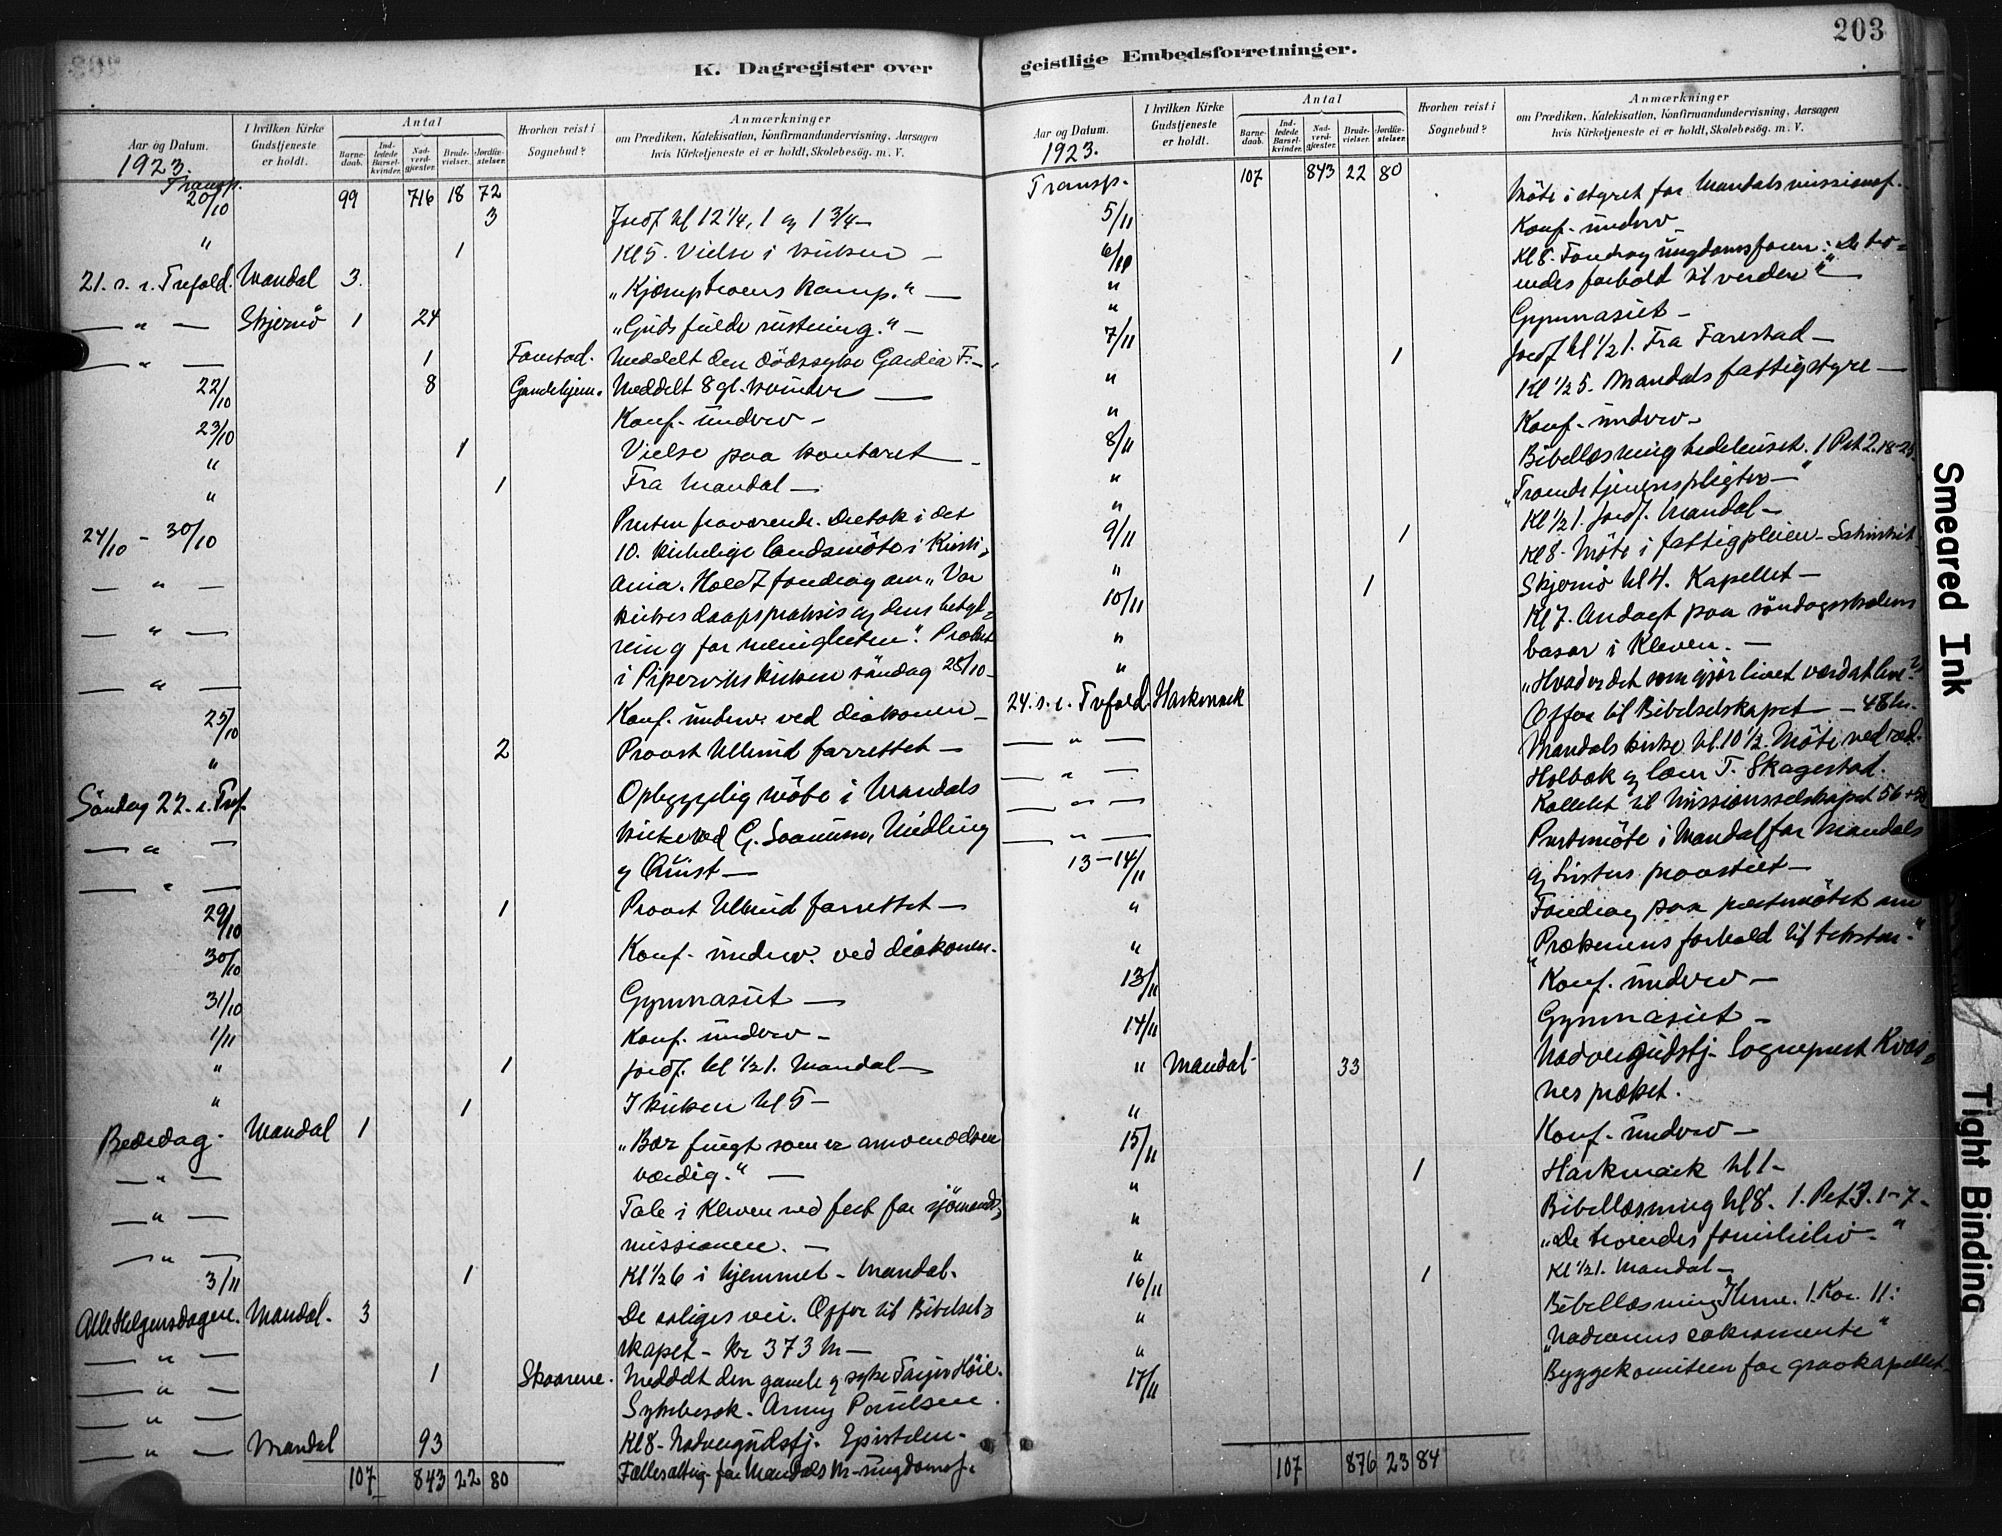 203
K. Dagregister over
Aar og Datum.
1923.
I hvilken Kirke Gudstjeneste er holdt.
Antal
Barne-daab.
Ind-ledede Barsel-kvinder.
Nad-verd-gjæster.
Brude-vielser.
Jordfæ-stelser.
Hvorhen reist i Sognebud?
Anmærkninger
om Prædiken, Katekisation, Konfirmandundervisning, Aarsagen
hvis Kirketjeneste ei er holdt, Skolebesög. m. V.
Transp. 99 716 18 72
20/10 3 Jordf. kl 12 1/4, 1 og 1 3/4 —
" 1 Kl 5. Vielse i kirken —
21. s. e. Trefold. Mandal 3. "Kjæmp troens kamp." —
— " — Skjernö 1 24 "Guds fulde rustning." —
— " — 1 Farestad. Meddelt den dödssyke F. —
22/10 8 Gamlehjem. Meddelt 8 gl. kvinder —
23/10 Konf. underv —
" 1 Vielse paa kontoret —
" 1 Fra Mandal —
24/10 - 30/10 Presten fraværende. Deltok i det
10. kirkelige landsmöte i Kristi-
— " — ania. Holdt foredrag om "Vor
kirkes daapspraksis og dens betyd-
— " — ning for menigheten". Præket
i Piperviks kirken söndag 28/10 —
— " —
25/10 Konf. underv. ved diakonen —
" 2 Provst Ullmid forrettet —
Söndag 22. e. Tref. Opbyggelig möte i Mandals
— " — kirke ved G.
— " — og Quist —
29/10 1 Provst forrettet —
30/10 Konf. underv. ved diakonen.
31/10 Gymnasiet —
1/11 Konf. underv —
" 1 Jordf. kl 1/2 1. Mandal —
" 1 I kirken kl 5 —
Bededag. Mandal 1 "Bær frugt som er omvendelsen
— " — værdig." —
— " — Tale i Kleven ved fest for sjömands-
— " — missionen. —
3/11 1 Kl 1/2 6 i hjemmet - Mandal.
Alle Helgensdagen. Mandal. 3 De saliges vei. Offer til Bibelsel-
— " — skapet - kr 373 kr —
— " — 1 Skaarene. Meddelt den gamle og syke
— " — Sykebesök. Anny Paulsen.
— " — Mandal 93 Kl 8 - Nadvergudstj. Epistelen.
107 843 22 80 for Mandals
geistlige Embedsforretninger.
Aar og Datum.
1923.
I hvilken Kirke Gudstjeneste er holdt.
Antal
Barne-daab.
Ind-ledede Barsel-kvinder.
Nad-verd-gjæster.
Brude-vielser.
Jordfæ-stelser.
Hvorhen reist i Sognebud?
Anmærkninger
om Prædiken, Katekisation, Konfirmandundervisning, Aarsagen
hvis Kirketjeneste ei er holdt, Skolebesög. m. V.
Transp. 107 843 22 80
5/11 Möte i styret for Mandals missionsf.
6/11 Konf. underv —
" Kl 8. Foredrag ungdomsforen: "De tro-
endes forhold til verden" —
7/11 Gymnasiet —
1 Jordf kl 1/2 1. Fra Farestad —
" Kl 1/2 5. Mandals fattigstyre —
" Konf. underv —
8/11 Bibellæsning bedehuset. 1 Pet 2. 18-25
" "Troende tjeneres pligter —"
" Kl 1/2 1. Jordf. Mandal —
9/11 1 Kl 8. Möte i fattigpleien —
" 1 Skjernö kl 4. Kapellet —
10/11 Kl 7. Andagt paa söndagsskolens
" basar i Kleven. —
24. s. e. Trefold. Harkmark "Hvad er det som gjör livet værd at leve?"
Offer til Bibelselskapet — 48 kr.
— " — Mandals kirke kl. 10 1/2. Möte ved red.
— " — Holbæk og lærer T. Skagestad.
— " — Kollekt til Missionsselskapet
— " — Prestemöte i Mandal for Mandals
13-14/11 og Listers provstiet —
" Foredrag paa prestemötet om
" "Prækenens forhold til teksten."
13/11 Konf. underv —
14/11 Gymnasiet —
" Mandal. 33 Nadvergudstj. Sogneprest
" nes præket.
15/11 Konf. underv —
" 1 Harkmark kl 1 —
" Bibellæsning kl 8. 1. Pet 3. 1-7 —
" "De troendes familieliv. —"
16/11 1 Kl 1/2 1. Mandal —
" Bibellæsning 1. Kor. 11:
" "Nadverens sakramente"
17/11 Byggekomiteen for gravkapellet —
107 876 23 84
Smeared Ink
Tight Binding